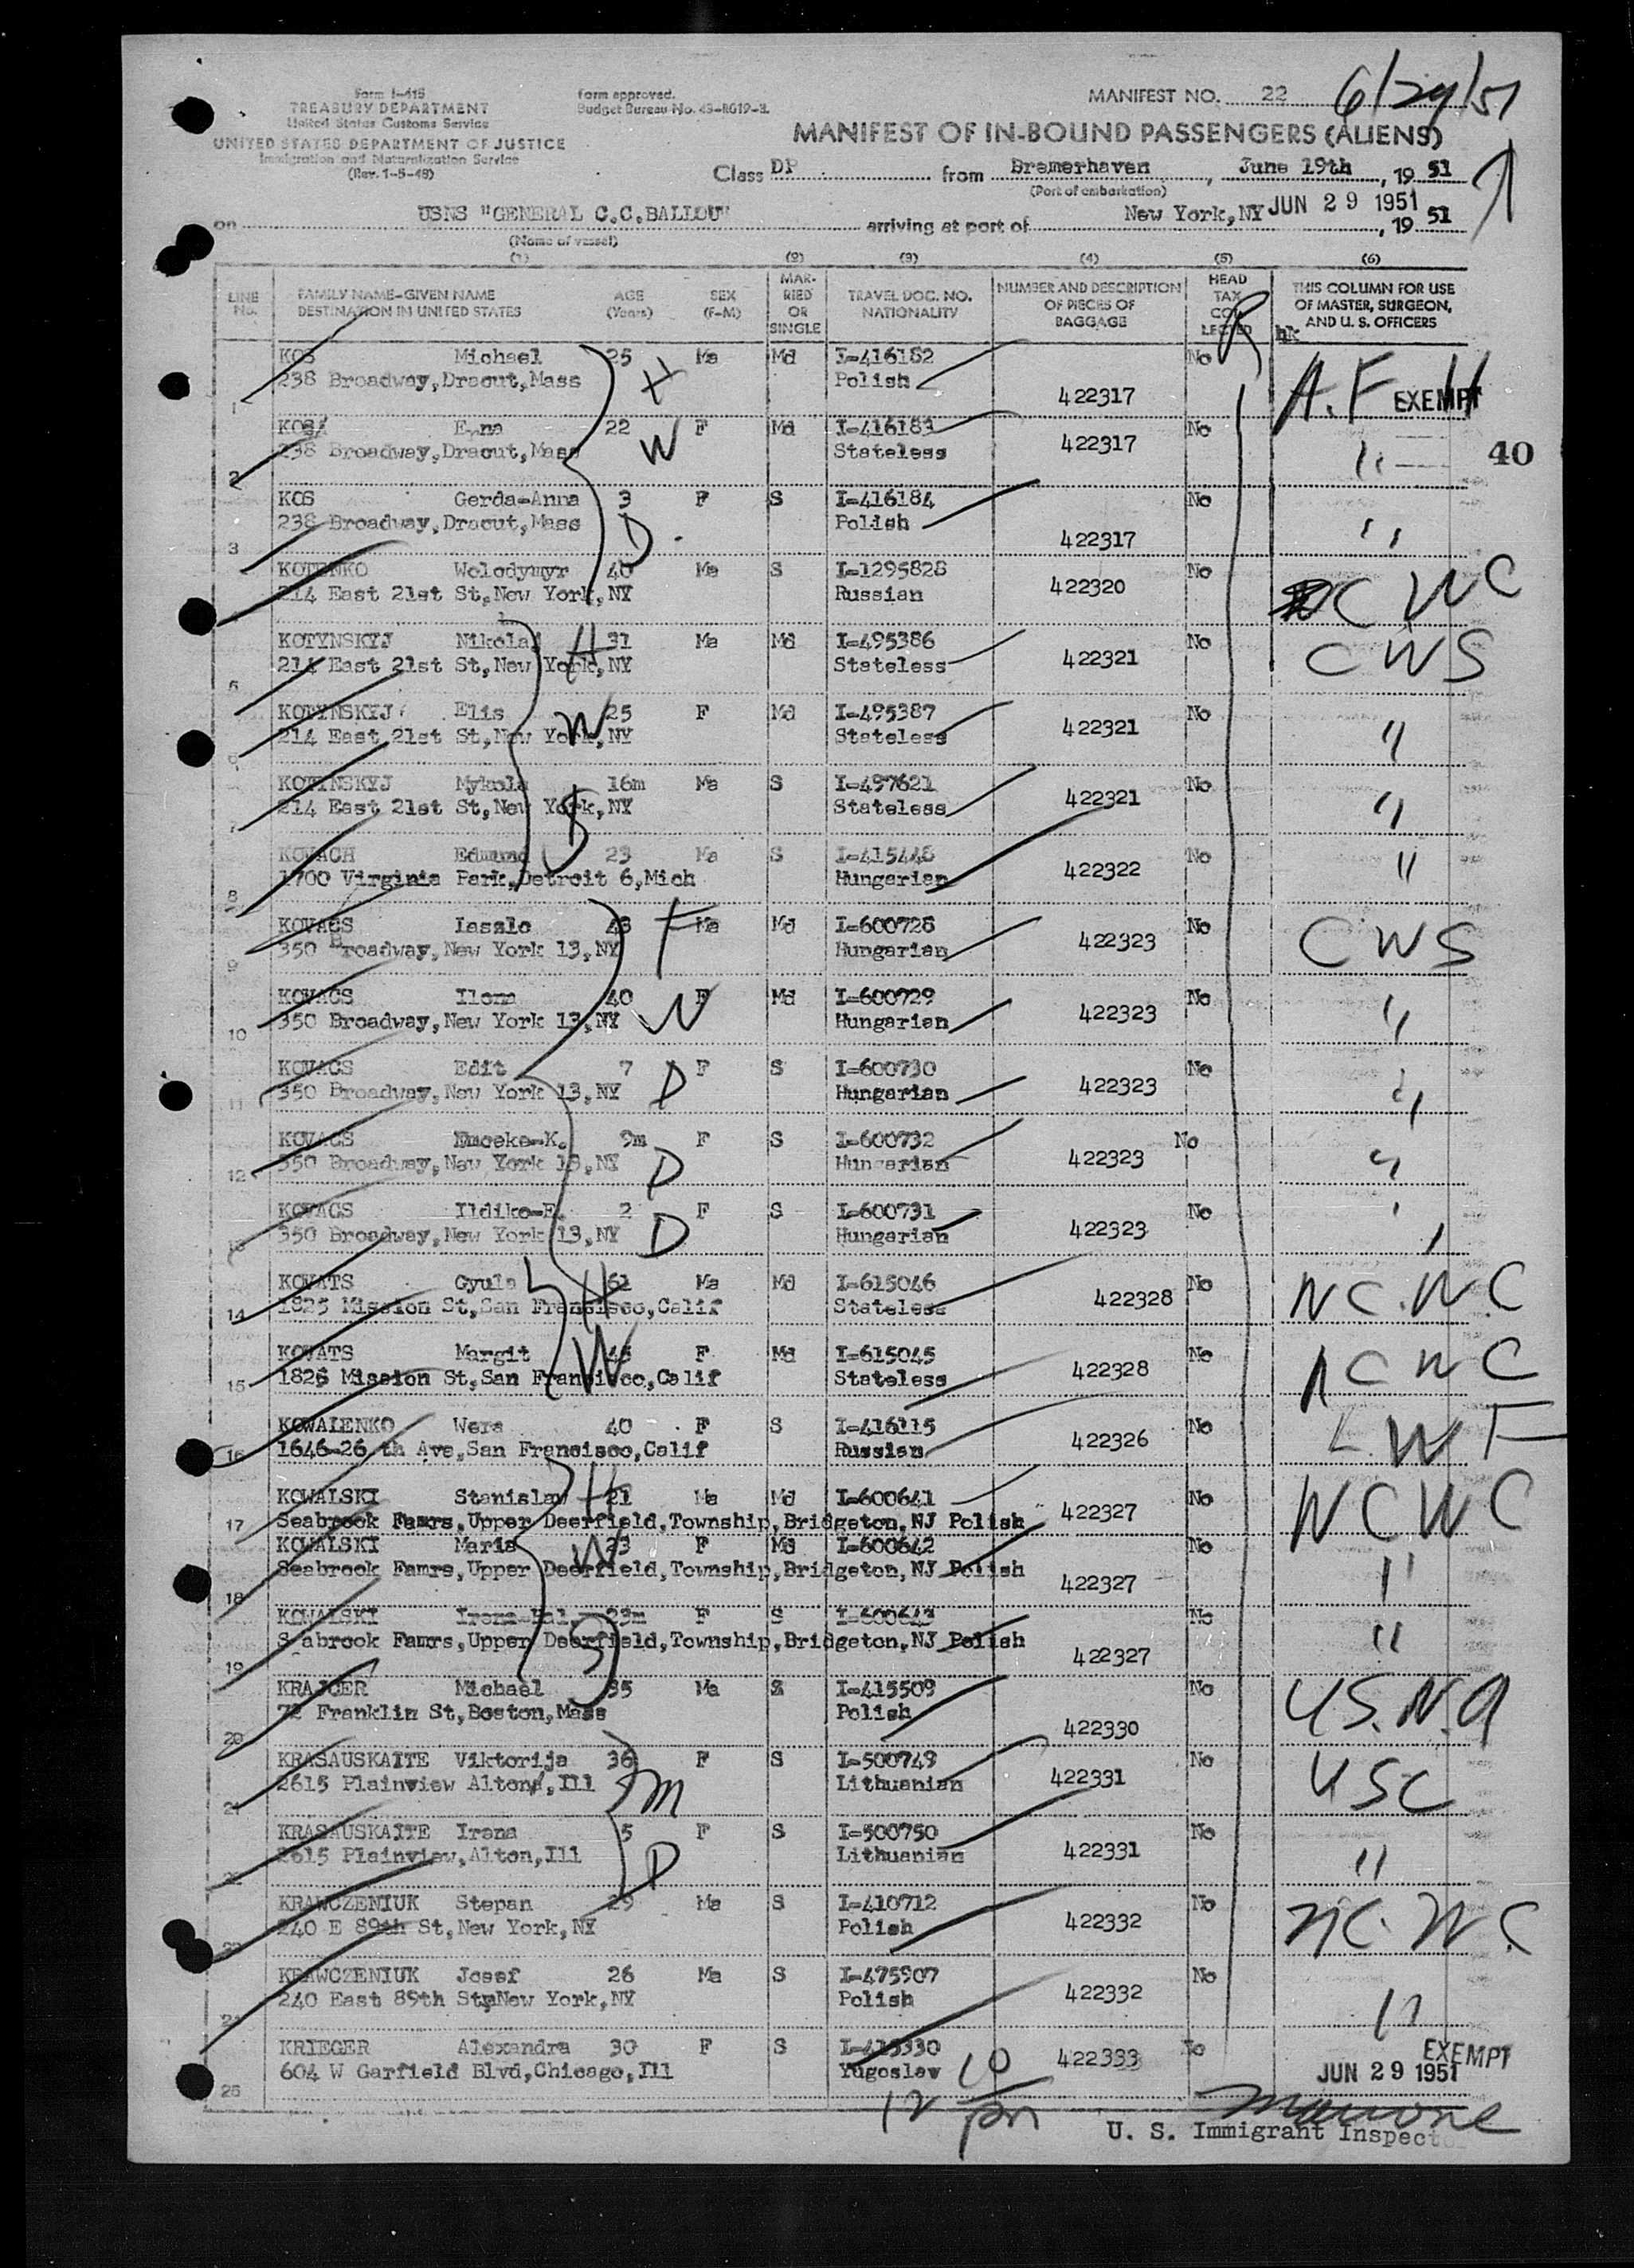 Form I-415
TREASURY DEPARTMENT
United States Customs Service
UNITED STATES DEPARTMENT OF JUSTICE
Immigration and Naturalization Service
(Rev. 1-5-48)
Form approved.
Budget Bureau No. 43-R019-3.
MANIFEST NO. 22 6/29/51
MANIFEST OF IN-BOUND PASSENGERS (ALIENS)
Class DP from Bremerhaven, June 19th, 19 51
(Port of embarkation)
on USNS "GENERAL C.C.BALLOU" arriving at port of New York,NY JUN 29 1951, 19 51
(Name of vessel)
(1) (2) (3) (4) (5) (6)
LINE No. FAMILY NAME-GIVEN NAME DESTINATION IN UNITED STATES AGE (Years) SEX (F-M) MARRIED OR SINGLE TRAVEL DOC. NO. NATIONALITY NUMBER AND DESCRIPTION OF PIECES OF BAGGAGE HEAD TAX COLLECTED THIS COLUMN FOR USE OF MASTER, SURGEON, AND U. S. OFFICERS
KOS Michael 25 Ma Md I-416182 No
238 Broadway,Dracut,Mass H Polish 422317 A.F EXEMPT
1
KOS E na 22 W F Md I-416183 No
238 Broadway,Dracut,Mass Stateless 422317 " 40
2
KOS Gerda-Anna 3 F S I-416184 No
238 Broadway,Dracut,Mass D. Polish 422317 "
3
KOTENKO Wolodymyr 40 Ma S I-1295828 No
214 East 21st St,New York,NY Russian 422320 NCWC
KOTYNSKYJ Nikolaj H 31 Ma Md I-495386 No
214 East 21st St,New York,NY Stateless 422321 CWS
5
KOTYNSKYJ Elis W 25 F Md I-495387 No
214 East 21st St,New York,NY Stateless 422321 "
6
KOTYNSKYJ Mykola 16m Ma S I-497621 No
214 East 21st St,New York,NY S Stateless 422321 "
7
KOVACH Edmund 23 Ma S I-415448 No
1700 Virginia Park,Detroit 6,Mich Hungarian 422322 "
8
KOVACS Laszlo 43 Ma Md I-600728 No
350 Broadway,New York 13,NY Hungarian 422323 CWS
9
KOVACS Ilona 40 F Md I-600729 No
350 Broadway,New York 13,NY W Hungarian 422323 "
10
KOVACS Edit 7 F S I-600730 No
350 Broadway,New York 13,NY D Hungarian 422323 "
11
KOVACS Emoeke-K. 9m F S I-600732 No
350 Broadway,New York 13,NY D Hungarian 422323 "
12
KOVACS Ildiko-E. 2 F S I-600731 No
350 Broadway,New York 13,NY D Hungarian 422323 "
13
KOVATS Gyula H 61 Ma Md I-615046 No
1825 Mission St,San Francisco,Calif Stateless 422328 NC.W.C
14
KOVATS Margit W 45 F Md I-615045 No
1826 Mission St,San Francisco,Calif Stateless 422328 NCWC
15
KOWALENKO Wera 40 F S I-416115 No
1646-26 th Ave,San Francisco,Calif Russian 422326 L.WF
16
KOWALSKI Stanislaw H 21 Ma Md I-600641 No
Seabrook Famrs,Upper Deerfield,Township,Bridgeton,NJ Polish 422327 NCWC
17
KOWALSKI Maria W 23 F Md I-600642 No
Seabrook Famrs,Upper Deerfield,Township,Bridgeton,NJ Polish 422327 "
18
KOWALSKI Irena-Hal. 23m F S I-600643 No
Seabrook Famrs,Upper Deerfield,Township,Bridgeton,NJ Polish 422327 "
19
KRAJCER Michael 35 Ma S I-415509 No
72 Franklin St,Boston,Mass Polish 422330 U.S.N.A
20
KRASAUSKAITE Viktorija 36 F S I-500749 No
2615 Plainview Alton,Ill M Lithuanian 422331 USC
21
KRASAUSKAITE Irena 5 F S I-500750 No
2615 Plainview,Alton,Ill D Lithuanian 422331 "
KRAWCZENIUK Stepan 29 Ma S I-410712 No
240 E 89th St,New York,NY Polish 422332 NC.W.C
KRAWCZENIUK Josef 26 Ma S I-475907 No
240 East 89th St,New York,NY Polish 422332 "
KRIEGER Alexandra 30 F S I-415330 No
604 W Garfield Blvd,Chicago,Ill Yugoslav 422333 EXEMPT
JUN 29 1951
25
12 10 pm
U. S. Immigrant Inspector